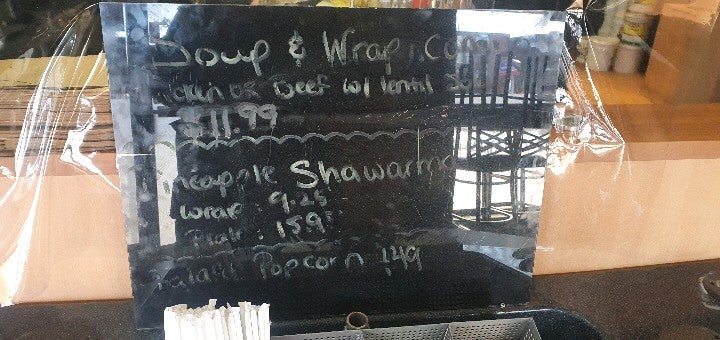 Soup & Wrap Combo
Chicken or Beef w/ lentil
$11.99
Pineapple Shawarma
wrap 9.25
Plate 15.95
Falafel Popcorn 1.49